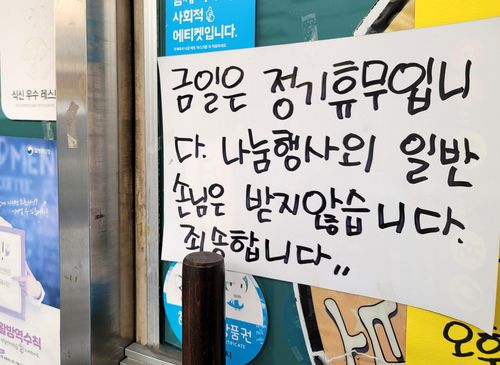 사회적
에티켓입니다.
식신 우수 레스
금일은 정기휴무입니
다. 나눔행사외 일반
손님은 받지않습니다.
죄송합니다,,
활방역수칙
상품권
오후